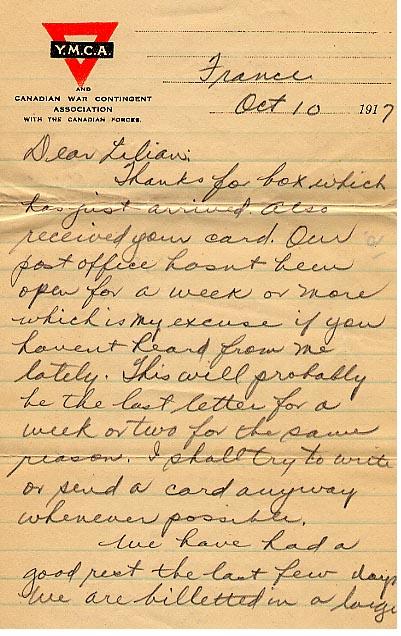 Y.M.C.A.
AND
CANADIAN WAR CONTINGENT
ASSOCIATION
WITH THE CANADIAN FORCES.
France
Oct 10 1917
Dear Lilian:
Thanks for box which
has just arrived. Also
received your card. Our
post office hasnt been
open for a week or more
which is my excuse if you
havent heard from me
lately. This will probably
be the last letter for a
week or two for the same
reason. I shall try to write
or send a card anyway
whenever possible.
We have had a
good rest the last few days
We are billetted in a large